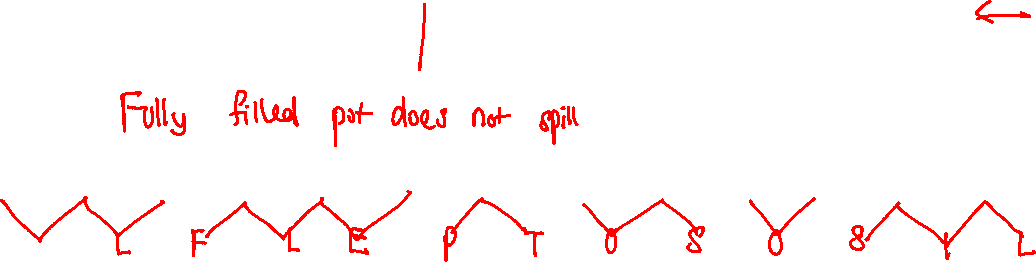 Fully filled pot does not spill
L F L E P T O S O S I L